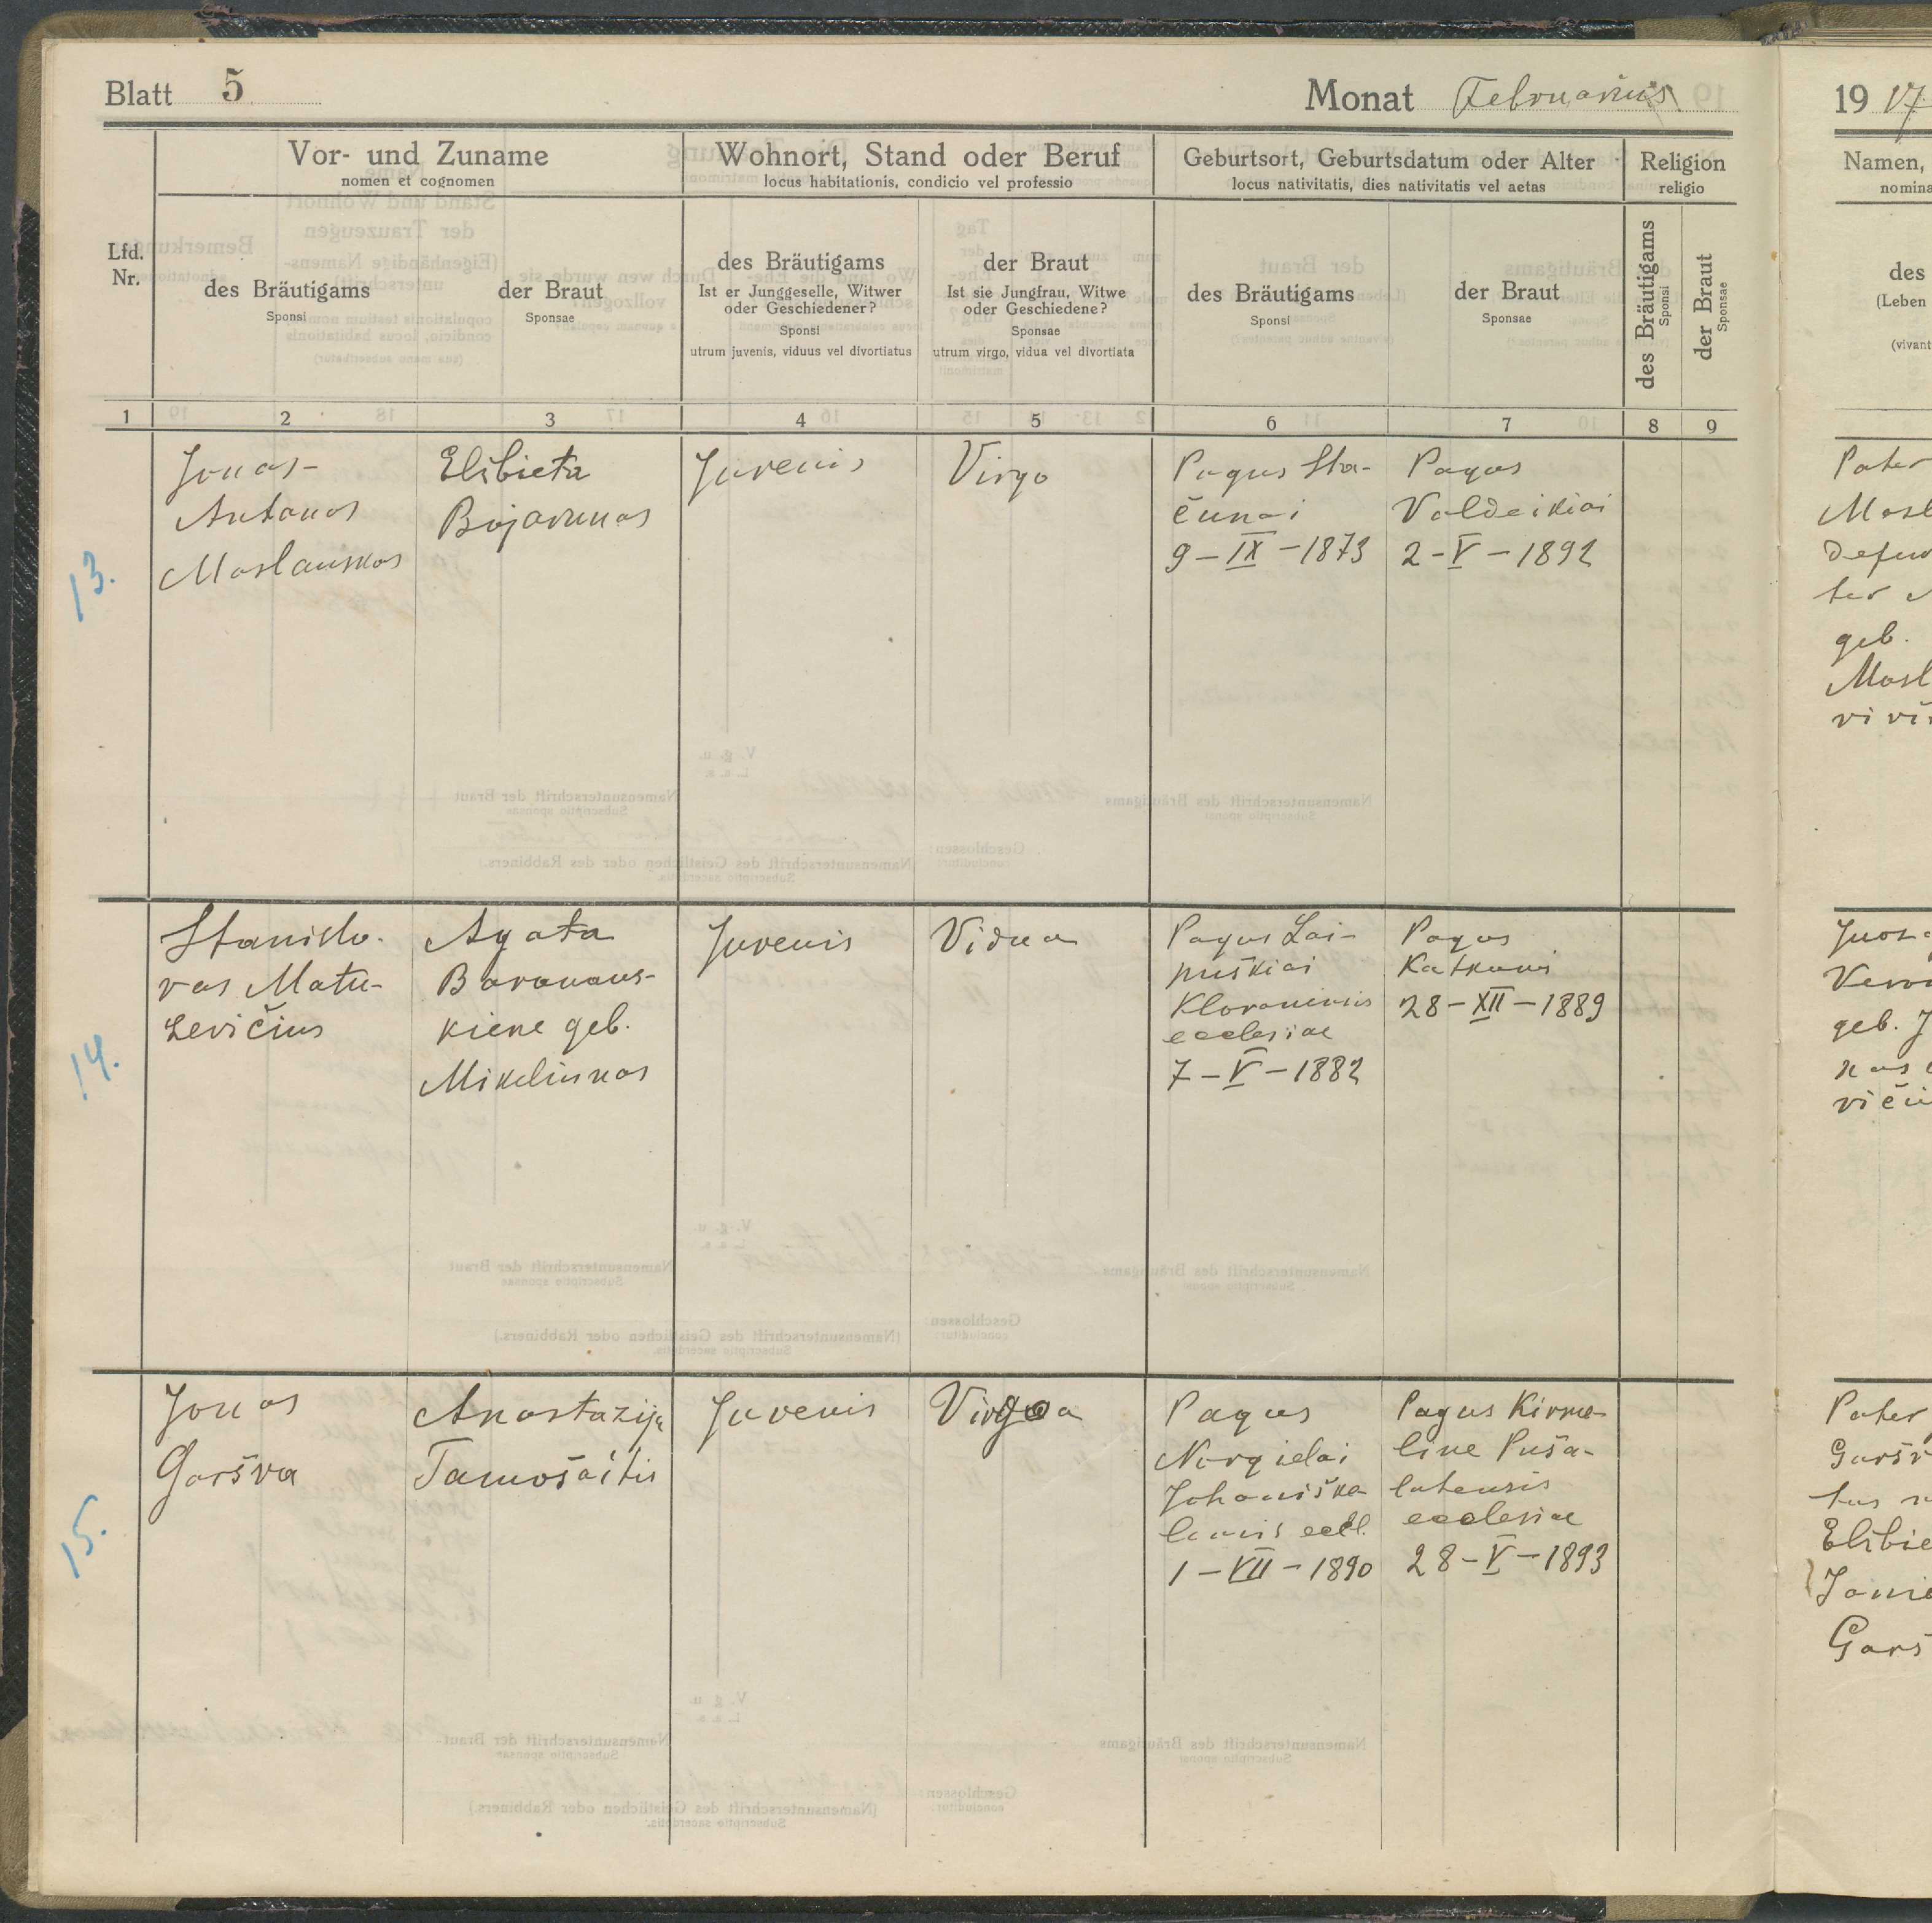 Blatt 5
Monat Februarius
Vor- und Zuname
nomen et cognomen
Wohnort, Stand oder Beruf
locus habitationis, condicio vel professio
Geburtsort, Geburtsdatum oder Alter
locus nativitatis, dies nativitatis vel aetas
Religion
religio
Lfd.
Nr.
des Bräutigams
Sponsi
der Braut
Sponsae
des Bräutigams
Ist er Junggeselle, Witwer
oder Geschiedener?
Sponsi
utrum juvenis, viduus vel divortiatus
der Braut
Ist sie Jungfrau, Witwe
oder Geschiedene?
Sponsae
utrum virgo, vidua vel divortiata
des Bräutigams
Sponsi
der Braut
Sponsae
des Bräutigams
Sponsi
der Braut
Sponsae
1 2 3 4 5 6 7 8 9
13.
Jonas-
Antanas
Maslauskas
Elžbieta
Bojarunas
Juvenis
Virgo
Pagus Sta-
čunai
9-IX-1873
Pagus
Valdeikiai
2-V-1892
14.
Stanislo-
vas Matu-
levičius
Agata
Baranaus-
kiene geb.
Mikeliunas
Juvenis
Vidua
Pagus Lai-
puškiai
Klovainensis
ecclesiae
7-V-1882
Pagus
Katkunai
28-XII-1889
15.
Jonas
Garšva
Anastazija
Tamošaitis
Juvenis
Virgo
Pagus
Norgielai
Johaniška
lensis eccl.
1-VII-1890
Pagus Kirme-
line Puša-
latensis
ecclesiae
28-V-1893
1917
Namen,
nomina
des
(Leben
(vivant
Pater
Masl
defun
ter
geb.
Masl
Juoza
Veron
geb. J
nas
vičiu
Pater
Garšv
tus
Elžbie
Garš